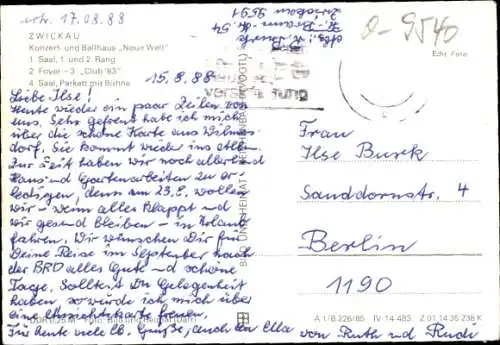 erh. 17.08.88
ZWICKAU
Konzert- und Ballhaus „Neue Welt"
1 Saal, 1. und 2. Rang
2 Foyer – 3 „Club '83"
4 Saal, Parkett mit Bühne
15.8.88
Liebe Ilse!
Heute wieder ein paar Zeilen von
uns. Sehr gefreut habe ich mich
über die schöne Karte aus Wilmers
dorf. Sie kommt wieder ins Album.
Zur Zeit haben wir noch allerhand
Haus- und Gartenarbeiten zu er
ledigen, denn am 23.8. wollen
wir – wenn alles klappt und
wir gesund bleiben – in Urlaub
fahren. Wir wünschen Dir für
Deine Reise im September nach
der BRD alles Gute und schöne
Tage. Solltest Du Gelegenheit
haben, so würde ich mich über
eine Ansichtskarte freuen.
Für heute viele lb. Grüße, auch an Ella
von Ruth und Rudi
9591
O-9540
Echt Foto
Frau
Ilse Burk
Sanddornstr. 4
Berlin
1190
BILD UND HEIMAT REICHENBACH (VOGTL)
DDR 0,25 M Foto: Bild und Heimat
A 1/B 226/85 IV-14-483 Z 01 14 35 238 K